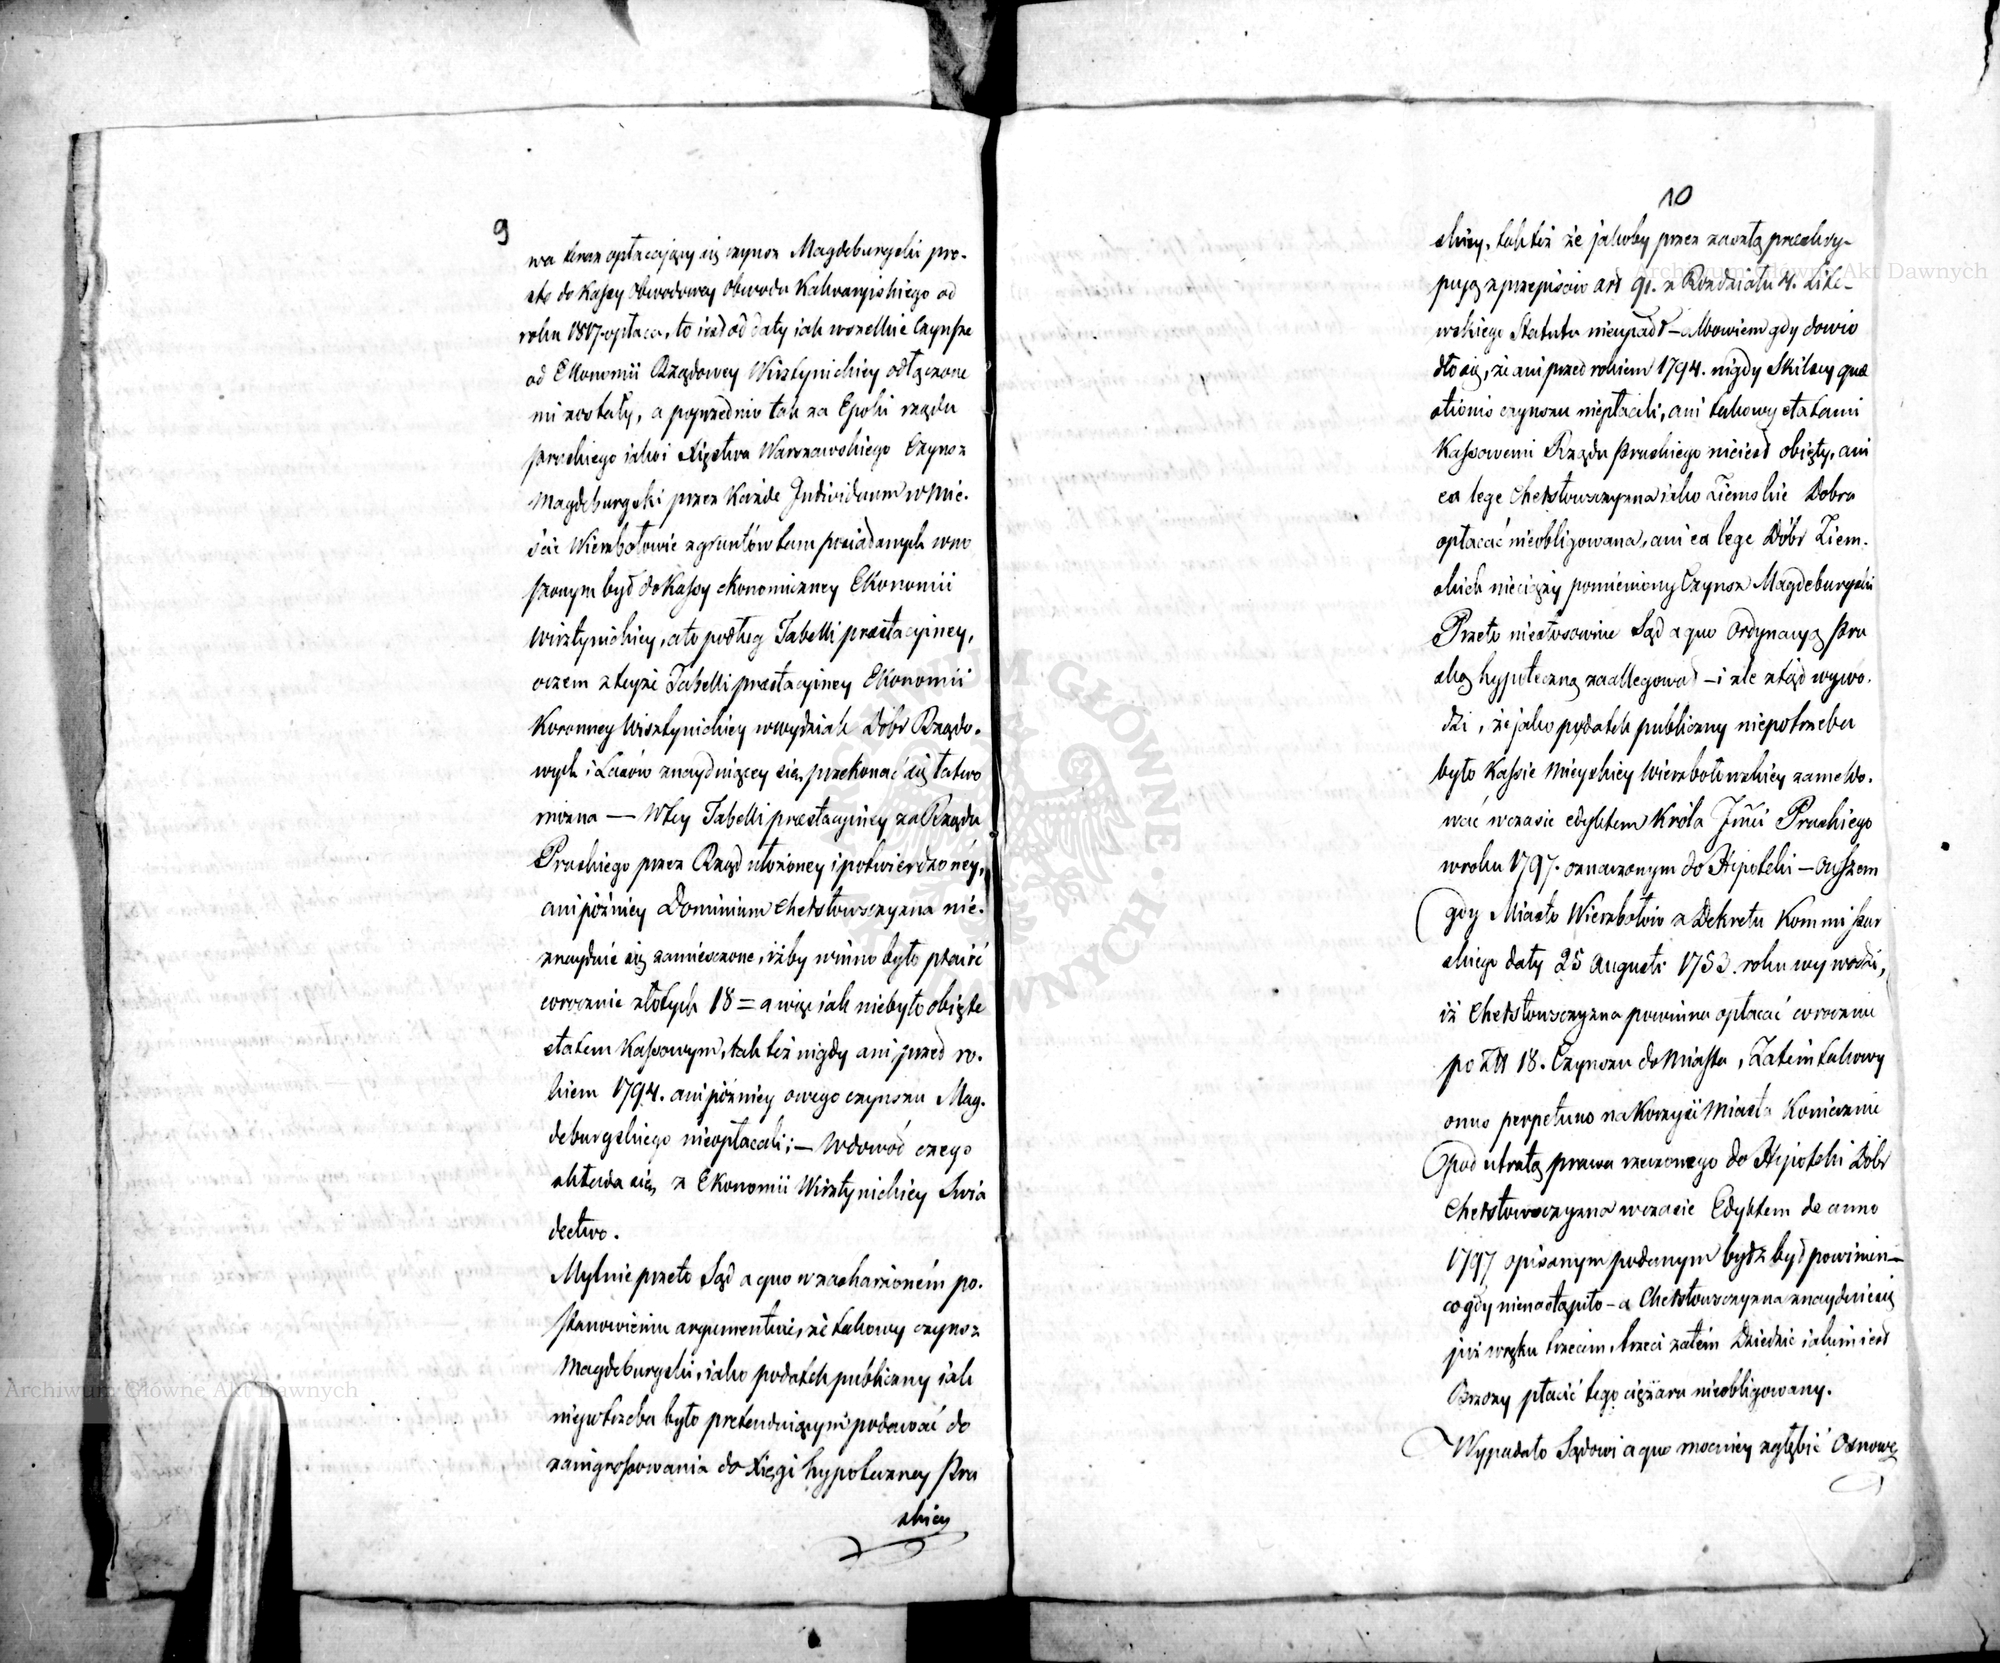 9
wa teraz opłacający się czynsz Magdeburgski pro-
sto do Kassy Obwodowey Obwodu Kalwaryiskiego od
roku 1817 opłaca, to iest od daty iak wszelkie Czynsze
od Ekonomii Rządowey Wisztynickiey odłączone
mi zostały, a poprzednio tak za Epoki rządu
Pruskiego iakoi Xięstwa Warszawskiego Czynsz
Magdeburgski przez każde Individuum w Mie-
ście Wierzbołowie z gruntów tam posiadanych wno
szonym był do Kassy ekonomiczney Ekonomii
Wisztynickiey, ato podług Tabelli præstacyiney,
oczem z teyże Tabelli præstacyiney Ekonomii
Koronney Wisztynickiey w wydziale Dóbr Rządo-
wych i Lasów znayduiącey się, przekonać się łatwo
można — W tey Tabelli præstacyiney za Rządu
Pruskiego przez Rząd ułożoney i potwierdzoney,
ani póżniey Dominium Chełstowszczyzna nie-
znayduie się zamieszczone, iżby winno było płacić
corocznie złotych 18 = a więc iak niebyło obięte
etatem Kassowym, tak też nigdy ani przed ro-
kiem 1794. ani póżniey owego czynszu Mag-
deburgskiego nieopłacali; — W dowód czego
składa się z Ekonomii Wisztynickiey Świa
dectwo.
Mylnie przeto Sąd a quo w zaskarżoném po-
stanowieniu argumentuie, że takowy czynsz
Magdeburgski, iako podatek publiczny iak
niepotrzeba było pretenduiącym podawać do
zaingrossowania do Xięgi hypoteczney Pru
skiey
10
skiey, tak też że jakoby przez zaszłą preskry-
pcyą z przepisów art 91. z Rozdziału 4. Lite-
wskiego Statutu nieupadł – albowiem gdy dowio
dło się, że ani przed rokiem 1794. nigdy Skilscy quæ
stionis czynszu niepłacili, ani takowy etatami
Kassowemi Rządu Pruskiego nieiest obięty, ani
ex lege Chełstowszczyzna iako Ziemskie Dobra
opłacać nieobligowana, ani ex lege Dóbr Ziem-
skich nieciąży pomieniony Czynsz Magdeburgski
Przeto niestosownie Sąd a quo Ordynacyą Pru
ską hypoteczną zaallegował – i źle ztąd wywo-
dzi, że jako podatek publiczny niepotrzeba
było Kassie Mieyskiey Wierzbołowskiey zameldo-
wać w czasie edyktem Króla Jmci Pruskiego
w roku 1797. oznaczonym do Hipoteki – owszem
gdy Miasto Wierzbołów z Dekretu Kommissar
skiego daty 25 Augusti 1753. roku wywodzi,
iż Chełstowszczyzna powinna opłacać corocznie
po Złł 18. Czynszu do Miasta, Zatem takowy
onus perpetuus na korzyść Miasta koniecznie
pod utratą prawa rzeczonego do Hipoteki Dóbr
Chełstowszczyzna w czasie Edyktem de anno
1797 opisanym podanym bydź był powinien –
co gdy nienastąpiło – a Chełstowszczyzna znayduie się
już w ręku trzecim, trzeci zatém Dziedzic iakim iest
Brzozy płacić tego ciężaru nieobligowany.
Wypadało Sądowi a quo mocniey zgłębić Osnowę
Archiwum Główne Akt Dawnych
Archiwum Główne Akt Dawnych
ARCHIWUM GŁÓWNE · AKT DAWNYCH ·